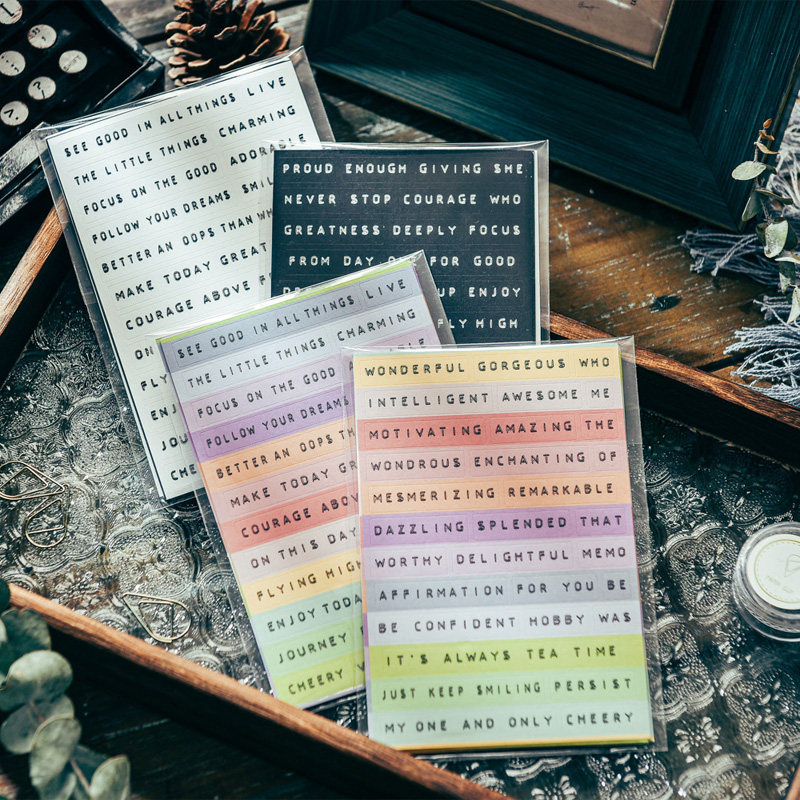 SEE GOOD IN ALL THINGS LIVE
THE LITTLE THINGS CHARMING
FOCUS ON THE GOOD ADORABLE
FOLLOW YOUR DREAMS
BETTER AN OOPS THAN
MAKE TODAY GREAT
COURAGE ABOVE
ON
FLY
JOU
CHE
PROUD ENOUGH GIVING SHE
NEVER STOP COURAGE WHO
GREATNESS DEEPLY FOCUS
FROM DAY FOR GOOD
UP ENJOY
FLY HIGH
SEE GOOD IN ALL THINGS LIVE
THE LITTLE THINGS CHARMING
FOCUS ON THE GOOD
FOLLOW YOUR DREAMS
BETTER AN OOPS TH
MAKE TODAY GR
COURAGE ABOV
ON THIS DAY
FLYING HIGH
ENJOY TODA
JOURNEY
CHEERY
WONDERFUL GORGEOUS WHO
INTELLIGENT AWESOME ME
MOTIVATING AMAZING THE
WONDROUS ENCHANTING OF
MESMERIZING REMARKABLE
DAZZLING SPLENDED THAT
WORTHY DELIGHTFUL MEMO
AFFIRMATION FOR YOU BE
BE CONFIDENT HOBBY WAS
IT'S ALWAYS TEA TIME
JUST KEEP SMILING PERSIST
MY ONE AND ONLY CHEERY